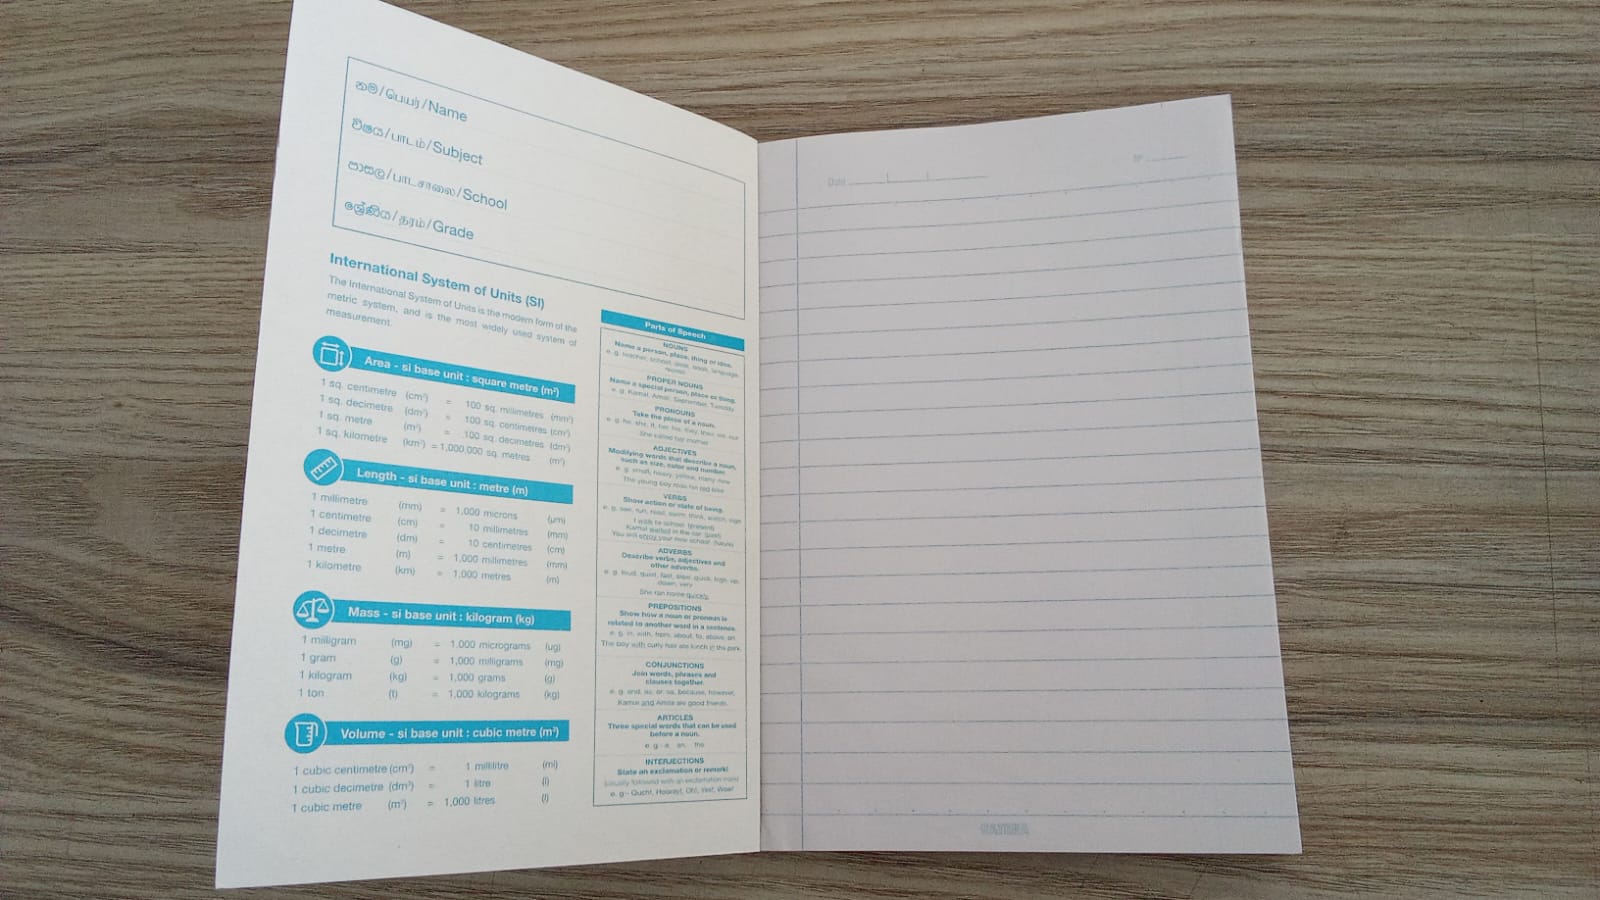 නම/பெயர்/Name
විෂය/பாடம்/Subject
පාසල/பாடசாலை/School
ශ්‍රේණිය/தரம்/Grade
International System of Units (SI)
The International System of Units is the modern form of the
metric system, and is the most widely used system of
measurement.
Area - si base unit : square metre (m²)
1 sq. centimetre (cm²) = 100 sq. millimetres (mm²)
1 sq. decimetre (dm²) = 100 sq. centimetres (cm²)
1 sq. metre (m²) = 100 sq. decimetres (dm²)
1 sq. kilometre (km²) = 1,000,000 sq. metres (m²)
Length - si base unit : metre (m)
1 millimetre (mm) = 1,000 microns (µm)
1 centimetre (cm) = 10 millimetres (mm)
1 decimetre (dm) = 10 centimetres (cm)
1 metre (m) = 1,000 millimetres (mm)
1 kilometre (km) = 1,000 metres (m)
Mass - si base unit : kilogram (kg)
1 milligram (mg) = 1,000 micrograms (ug)
1 gram (g) = 1,000 milligrams (mg)
1 kilogram (kg) = 1,000 grams (g)
1 ton (t) = 1,000 kilograms (kg)
Volume - si base unit : cubic metre (m³)
1 cubic centimetre (cm³) = 1 millilitre (ml)
1 cubic decimetre (dm³) = 1 litre (l)
1 cubic metre (m³) = 1,000 litres (l)
Parts of Speech
NOUNS
Name a person, place, thing or idea.
e. g. teacher, school, desk, book, language,
PROPER NOUNS
Name a special person, place or thing.
e. g. Kamal, Amal, September, Tuesday
PRONOUNS
Take the place of a noun.
e. g. he, she, it, her, his, they, their, we, our
She called her mother
ADJECTIVES
Modifying words that describe a noun,
such as size, color and number.
e. g. small, heavy, yellow, many, new
The young boy rode his red bike
VERBS
Show action or state of being.
e. g. see, run, read, swim, think, watch, sign
I walk to school (present)
Kamal walked in the car (past)
You will enjoy your new school (future)
ADVERBS
Describe verbs, adjectives and
other adverbs.
e. g. loud, quiet, fast, slow, quick, high, up,
down, very
She ran home quickly.
PREPOSITIONS
Show how a noun or pronoun is
related to another word in a sentence.
e. g. in, with, from, about, to, above, on
The boy with curly hair ate lunch in the park.
CONJUNCTIONS
Join words, phrases and
clauses together.
e. g. and, as, or, so, because, however,
Kamal and Amila are good friends.
ARTICLES
Three special words that can be used
before a noun.
e. g.- a, an, the
INTERJECTIONS
State an exclamation or remark!
(usually followed with an exclamation mark)
e. g.- Ouch!, Hooray!, Oh!, Yes!, Wow!
Date
Nº